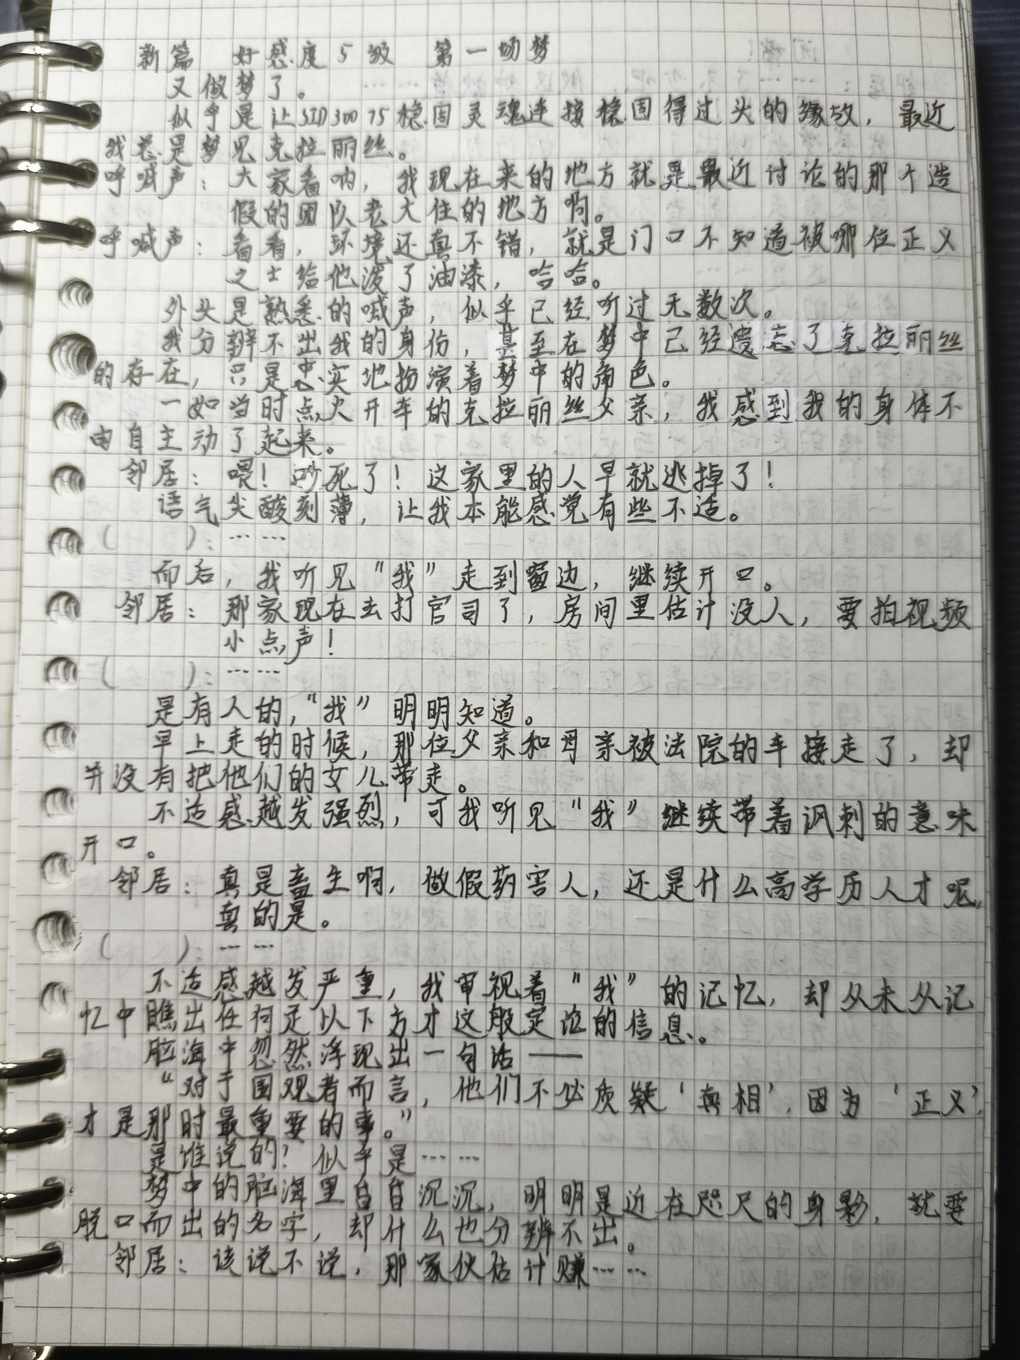 新篇 好感度5级 第一场梦
又做梦了。
似乎是让SID30075稳固灵魂连接稳固得过头的缘故，最近
我总是梦见克拉丽丝。
呼喊声：大家看哟，我现在来的地方就是最近讨论的那个造
假的团队老大住的地方啊。
呼喊声：看看，环境还真不错，就是门口不知道被哪位正义
之士给他泼了油漆，哈哈。
外头是熟悉的喊声，似乎已经听过无数次。
我分辨不出我的身份，甚至在梦中已经遗忘了克拉丽丝
的存在，只是忠实地扮演着梦中的角色。
一如当时点火开车的克拉丽丝父亲，我感到我的身体不
由自主动了起来。
邻居：喂！吵死了！这家里的人早就逃掉了！
语气尖酸刻薄，让我本能感觉有些不适。
（ ）：……
而后，我听见“我”走到窗边，继续开口。
邻居：那家现在去打官司了，房间里估计没人，要拍视频
小点声！
（ ）：……
是有人的，“我”明明知道。
早上走的时候，那位父亲和母亲被法院的车接走了，却
并没有把他们的女儿带走。
不适感越发强烈，可我听见“我”继续带着讽刺的意味
开口。
邻居：真是畜生啊，做假药害人，还是什么高学历人才呢。
真的是。
（ ）：……
不适感越发严重，我审视着“我”的记忆，却从未从记
忆中瞧出任何足以下方才这般定论的信息。
脑海中忽然浮现出一句话——
“对于围观者而言，他们不必质疑‘真相’，因为‘正义’
才是那时最重要的事。”
是谁说的？似乎是……
梦中的脑海里昏昏沉沉，明明是近在咫尺的身影，就要
脱口而出的名字，却什么也分辨不出。
邻居：该说不说，那家伙估计赚……